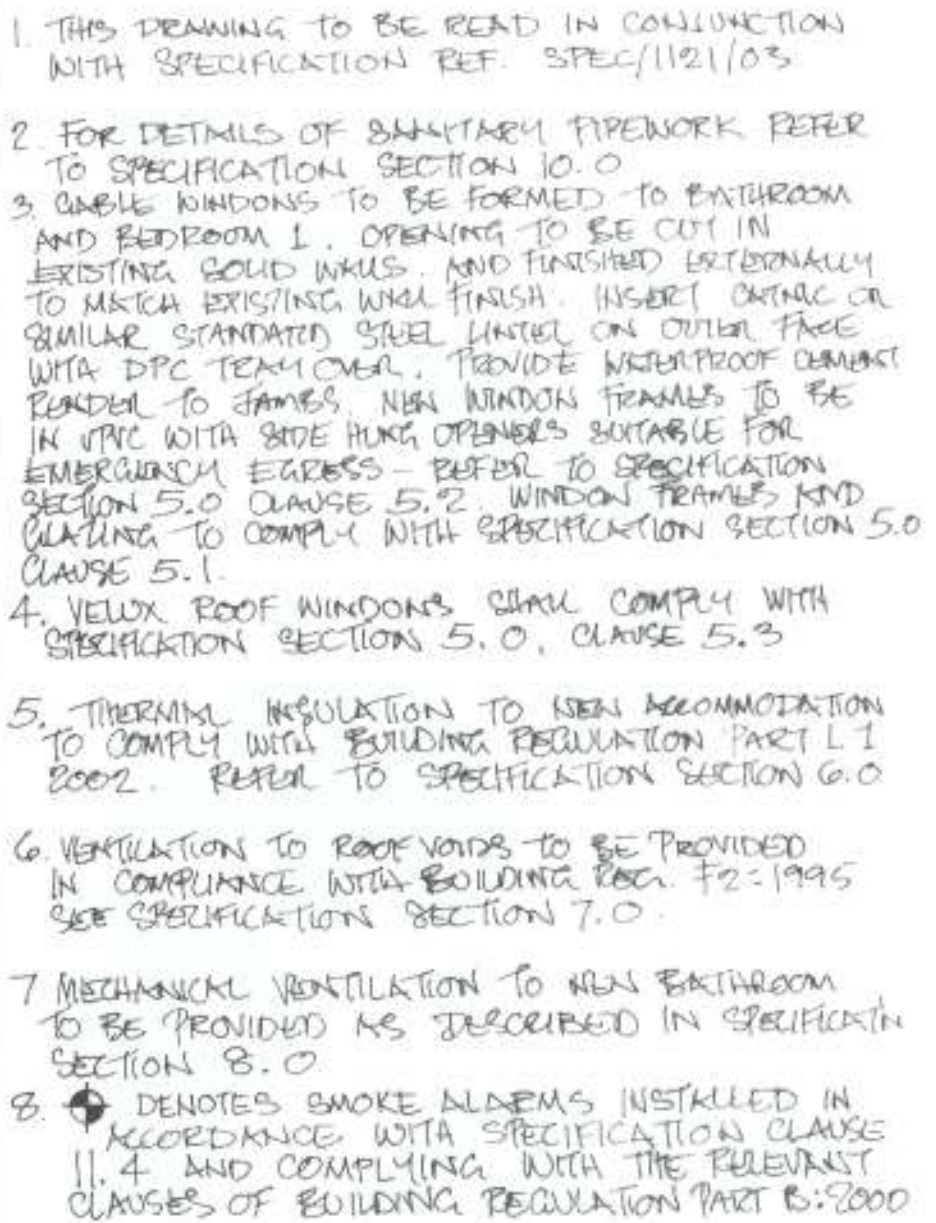 1. THIS DRAWING TO BE READ IN CONJUNCTION
WITH SPECIFICATION REF. SPEC/1121/03
2. FOR DETAILS OF SANITARY PIPEWORK REFER
TO SPECIFICATION SECTION 10.0
3. GABLE WINDOWS TO BE FORMED TO BATHROOM
AND BEDROOM 1. OPENING TO BE CUT IN
EXISTING SOLID WALLS. AND FINISHED EXTERNALLY
TO MATCH EXISTING WALL FINISH. INSERT CATNIC OR
SIMILAR STANDARD STEEL LINTEL ON OUTER FACE
WITH DPC TRAY OVER. PROVIDE WATERPROOF CEMENT
RENDER TO JAMBS. NEW WINDOW FRAMES TO BE
IN UPVC WITH SIDE HUNG OPENERS SUITABLE FOR
EMERGENCY EGRESS – REFER TO SPECIFICATION
SECTION 5.0 CLAUSE 5.2. WINDOW FRAMES AND
GLAZING TO COMPLY WITH SPECIFICATION SECTION 5.0
CLAUSE 5.1.
4. VELUX ROOF WINDOWS SHALL COMPLY WITH
SPECIFICATION SECTION 5.0, CLAUSE 5.3
5. THERMAL INSULATION TO NEW ACCOMMODATION
TO COMPLY WITH BUILDING REGULATION PART L1
2002. REFER TO SPECIFICATION SECTION 6.0
6. VENTILATION TO ROOF VOIDS TO BE PROVIDED
IN COMPLIANCE WITH BUILDING REG. F2:1995
SEE SPECIFICATION SECTION 7.0.
7 MECHANICAL VENTILATION TO NEW BATHROOM
TO BE PROVIDED AS DESCRIBED IN SPECIFICAT'N
SECTION 8.0
8. DENOTES SMOKE ALARMS INSTALLED IN
ACCORDANCE WITH SPECIFICATION CLAUSE
11.4 AND COMPLYING WITH THE RELEVANT
CLAUSES OF BUILDING REGULATION PART B:2000